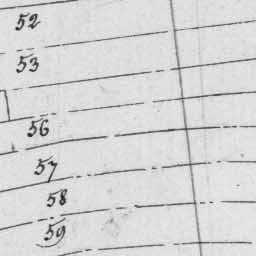 52
53
56
57
58
59